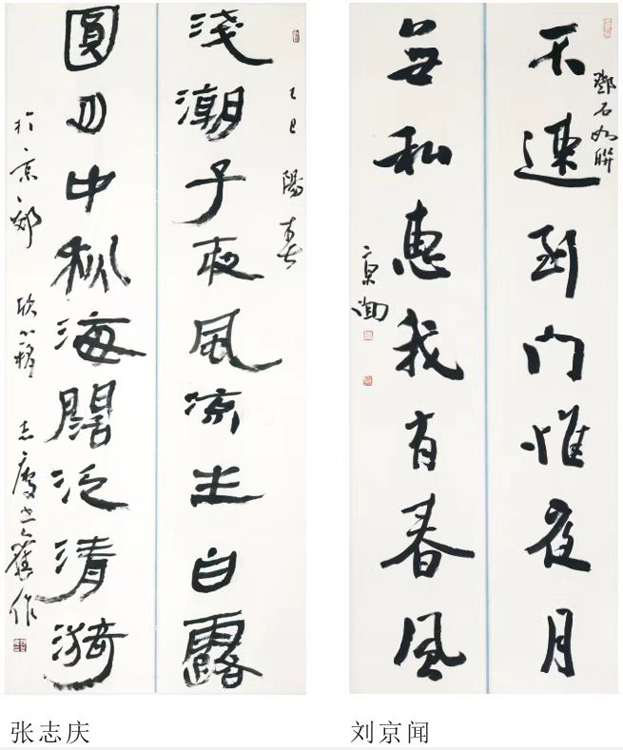 乙巳陽春
淺潮子夜風涼生白露
圓月中秋海闊泛清漪
於京郊
志慶書舊作
鄧石如聯
不速到門惟夜月
無私惠我有春風
京聞
张志庆
刘京闻